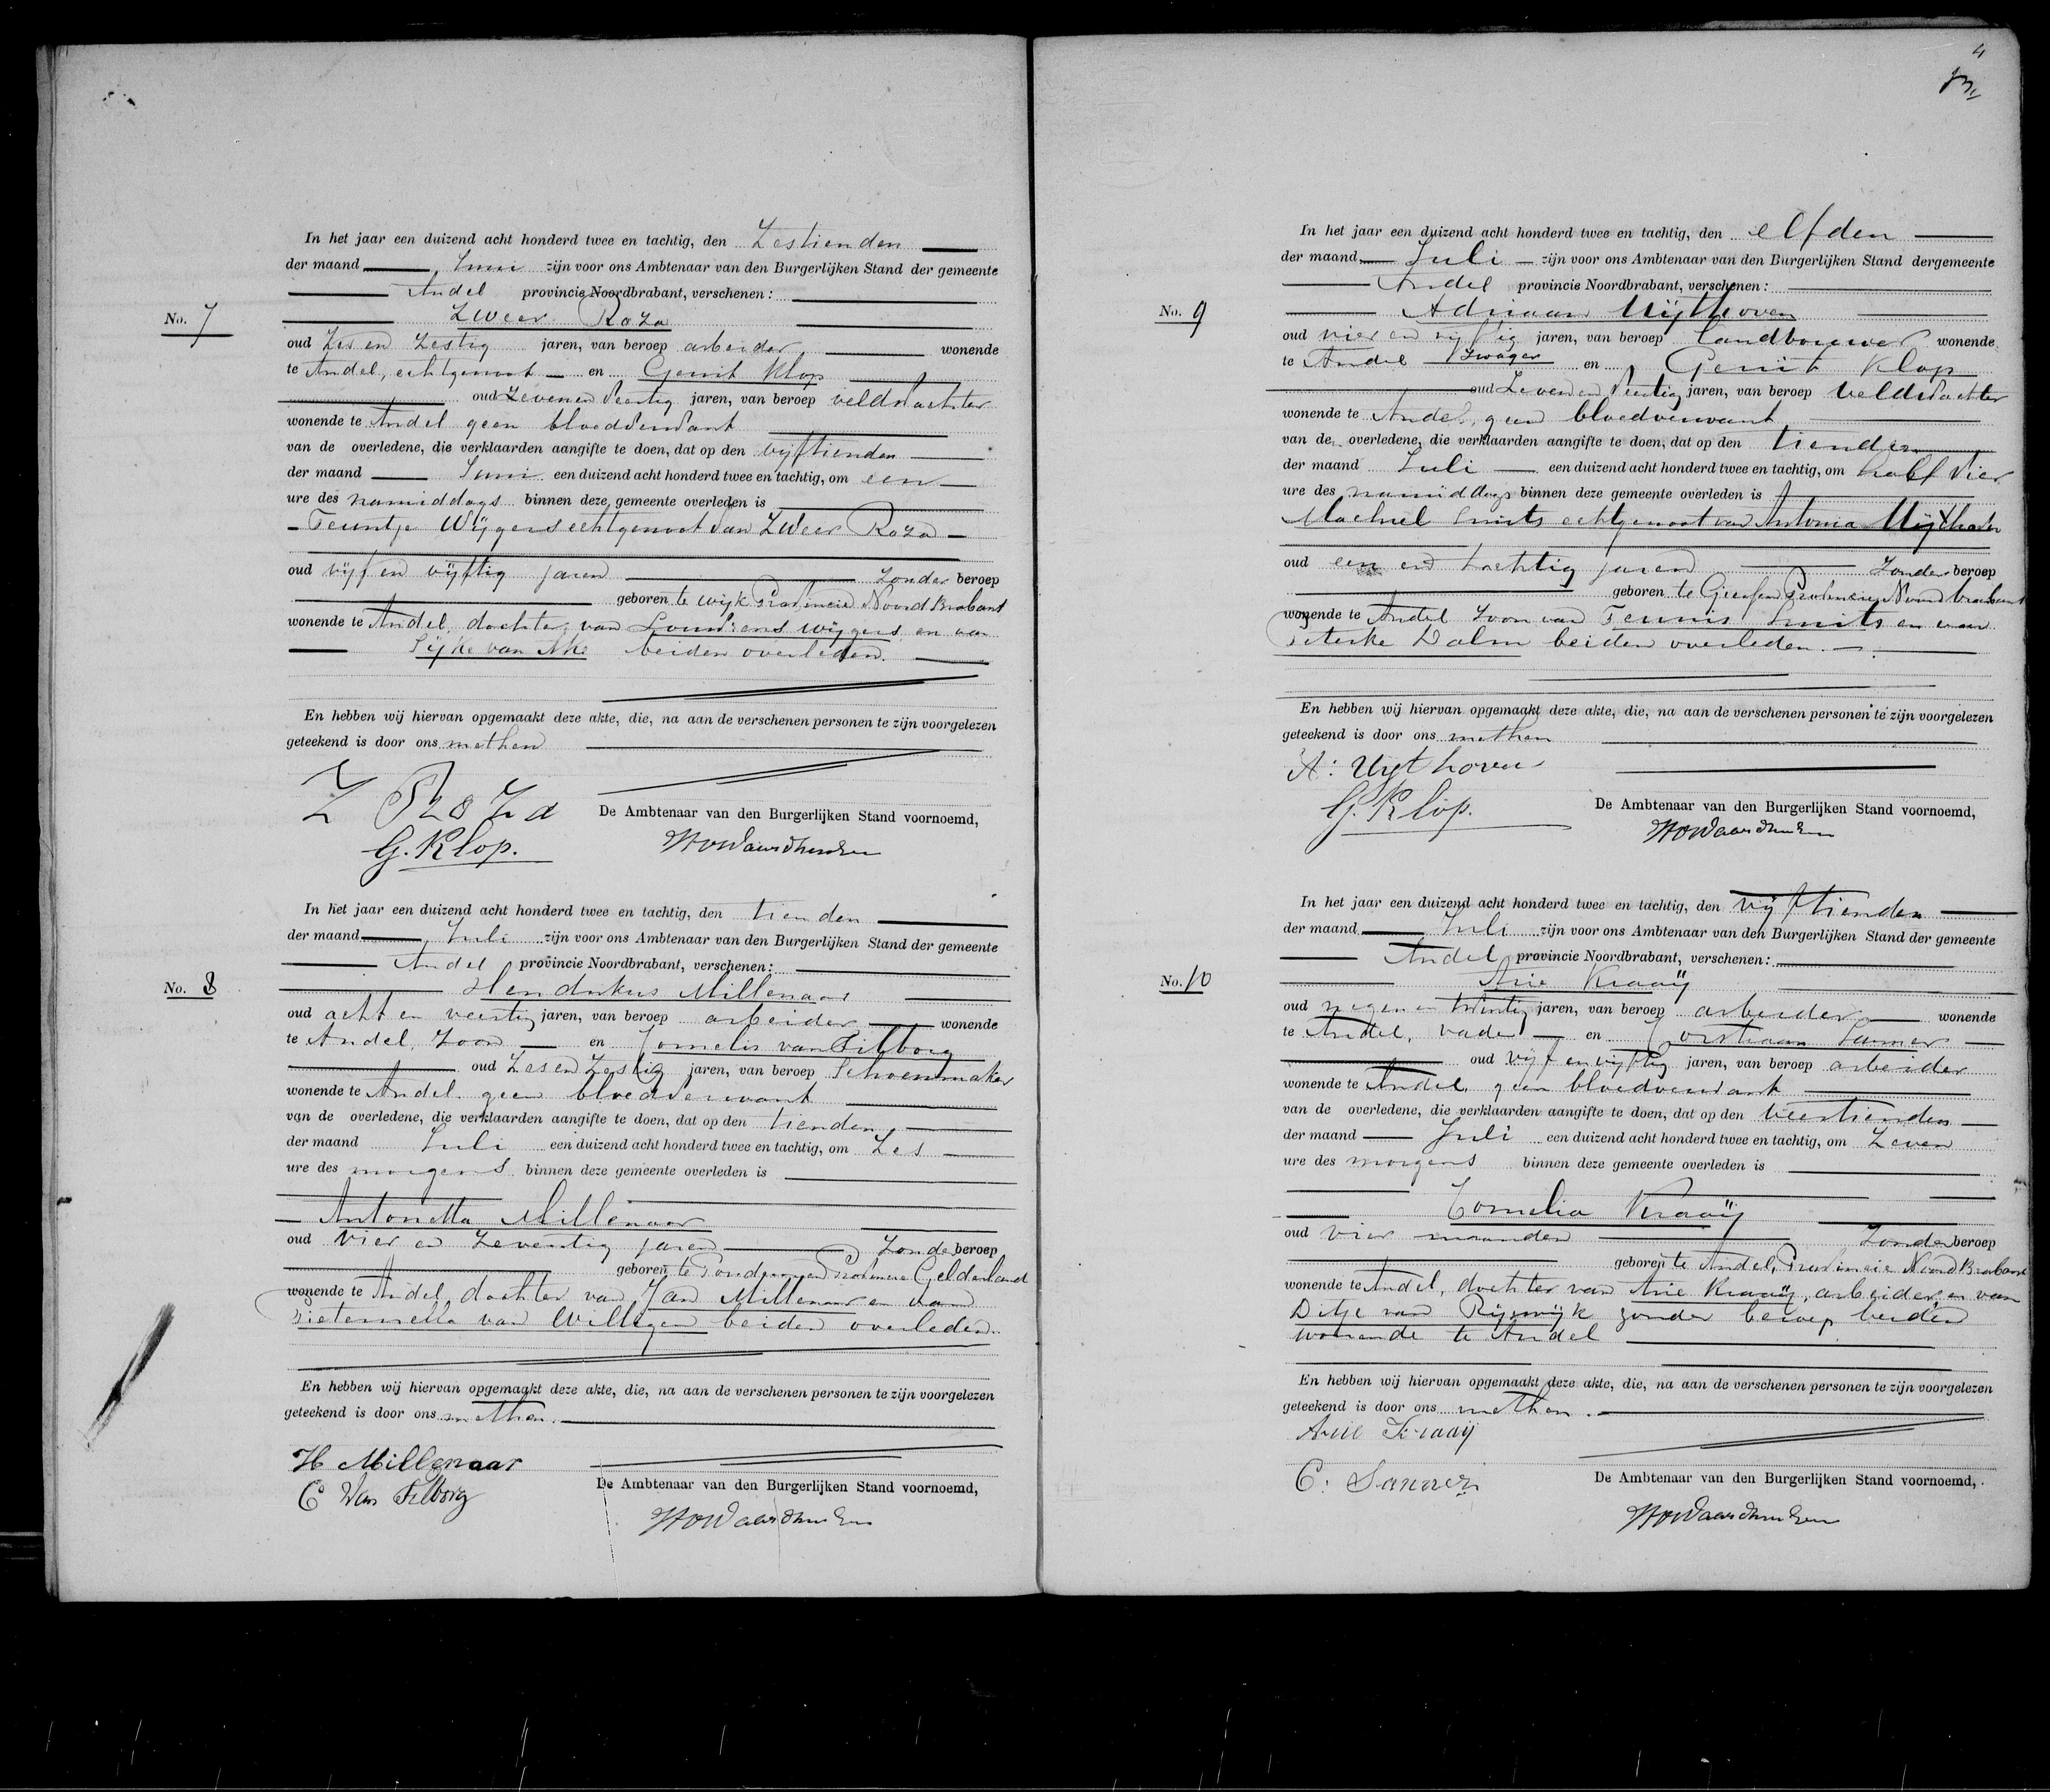 In het jaar een duizend acht honderd twee en tachtig, den Zestienden
der maand Juni zijn voor ons Ambtenaar van den Burgerlijken Stand der gemeente
Andel provincie Noordbrabant, verschenen:
No. 7
Zweer Roza
oud Zes en Zestig jaren, van beroep arbeider wonende
te Andel, echtgenoot en Gerrit Klop
oud Zeven en veertig jaren, van beroep veldwachter
wonende te Andel geen bloedverwant
van de overledene, die verklaarden aangifte te doen, dat op den vijftienden
der maand Juni een duizend acht honderd twee en tachtig, om een
ure des namiddags binnen deze gemeente overleden is
Teuntje Wijgers echtgenoot van Zweer Roza
oud vijf en vijftig jaren Zonder beroep
geboren te Wijk Provincie Noord Brabant
wonende te Andel, dochter van Lourens Wijgers en van
Sijke van Ake beiden overleden.
En hebben wij hiervan opgemaakt deze akte, die, na aan de verschenen personen te zijn voorgelezen
geteekend is door ons met hen
Z Roza
De Ambtenaar van den Burgerlijken Stand voornoemd,
G. Klop.
In het jaar een duizend acht honderd twee en tachtig, den tienden
der maand Juli zijn voor ons Ambtenaar van den Burgerlijken Stand der gemeente
Andel provincie Noordbrabant, verschenen:
No. 8
Hendrikus Millenaar
oud acht en veertig jaren, van beroep arbeider wonende
te Andel, Zoon en Cornelis van Tilborg
oud Zes en Zestig jaren, van beroep Schoenmaker
wonende te Andel geen bloedverwant
van de overledene, die verklaarden aangifte te doen, dat op den tienden
der maand Juli een duizend acht honderd twee en tachtig, om Zes
ure des morgens binnen deze gemeente overleden is
Antonetta Millenaar
oud vier en Zeventig jaren Zonder beroep
geboren te Poederoyen Provincie Gelderland
wonende te Andel, dochter van Jan Millenaar en van
Pieternella van Willigen beiden overleden.
En hebben wij hiervan opgemaakt deze akte, die, na aan de verschenen personen te zijn voorgelezen
geteekend is door ons met hen.
H Millenaar
De Ambtenaar van den Burgerlijken Stand voornoemd,
C van Tilborg
4
In het jaar een duizend acht honderd twee en tachtig, den elfden
der maand Juli zijn voor ons Ambtenaar van den Burgerlijken Stand dergemeente
Andel provincie Noordbrabant, verschenen:
No. 9
Adriaan Uijthoven
oud vier en vijftig jaren, van beroep Landbouwer wonende
te Andel Zwager en Gerrit Klop
oud Zeven en Veertig jaren, van beroep Veldwachter
wonende te Andel, geen bloedverwant
van de overledene, die verklaarden aangifte te doen, dat op den tienden
der maand Juli een duizend acht honderd twee en tachtig, om half vier
ure des namiddags binnen deze gemeente overleden is
Machiel Smits echtgenoot van Antonia Uijthoven
oud een en tachtig jaren Zonder beroep
geboren te Giessen Provincie Noord brabant
wonende te Andel Zoon van Teunis Smits en van
Peterke Dalm beiden overleden.
En hebben wij hiervan opgemaakt deze akte, die, na aan de verschenen personen te zijn voorgelezen
geteekend is door ons met hen
A: Uijthoven
De Ambtenaar van den Burgerlijken Stand voornoemd,
G. Klop.
In het jaar een duizend acht honderd twee en tachtig, den vijftienden
der maand Juli zijn voor ons Ambtenaar van den Burgerlijken Stand der gemeente
Andel provincie Noordbrabant, verschenen:
No. 10
Arie Kraaij
oud negen en twintig jaren, van beroep arbeider wonende
te Andel, vader en Corstiaan Sanner
oud vijf en vijftig jaren, van beroep arbeider
wonende te Andel, geen bloedverwant
van de overledene, die verklaarden aangifte te doen, dat op den veertienden
der maand Juli een duizend acht honderd twee en tachtig, om Zeven
ure des morgens binnen deze gemeente overleden is
Cornelia Kraaij
oud vier maanden Zonder beroep
geboren te Andel, Provincie Noord Brabant
wonende te Andel, dochter van Arie Kraaij, arbeider, en van
Ditje van Rijswijk zonder beroep beiden
wonende te Andel
En hebben wij hiervan opgemaakt deze akte, die, na aan de verschenen personen te zijn voorgelezen
geteekend is door ons met hen.
Arie Kraaij
De Ambtenaar van den Burgerlijken Stand voornoemd,
C: Sanner